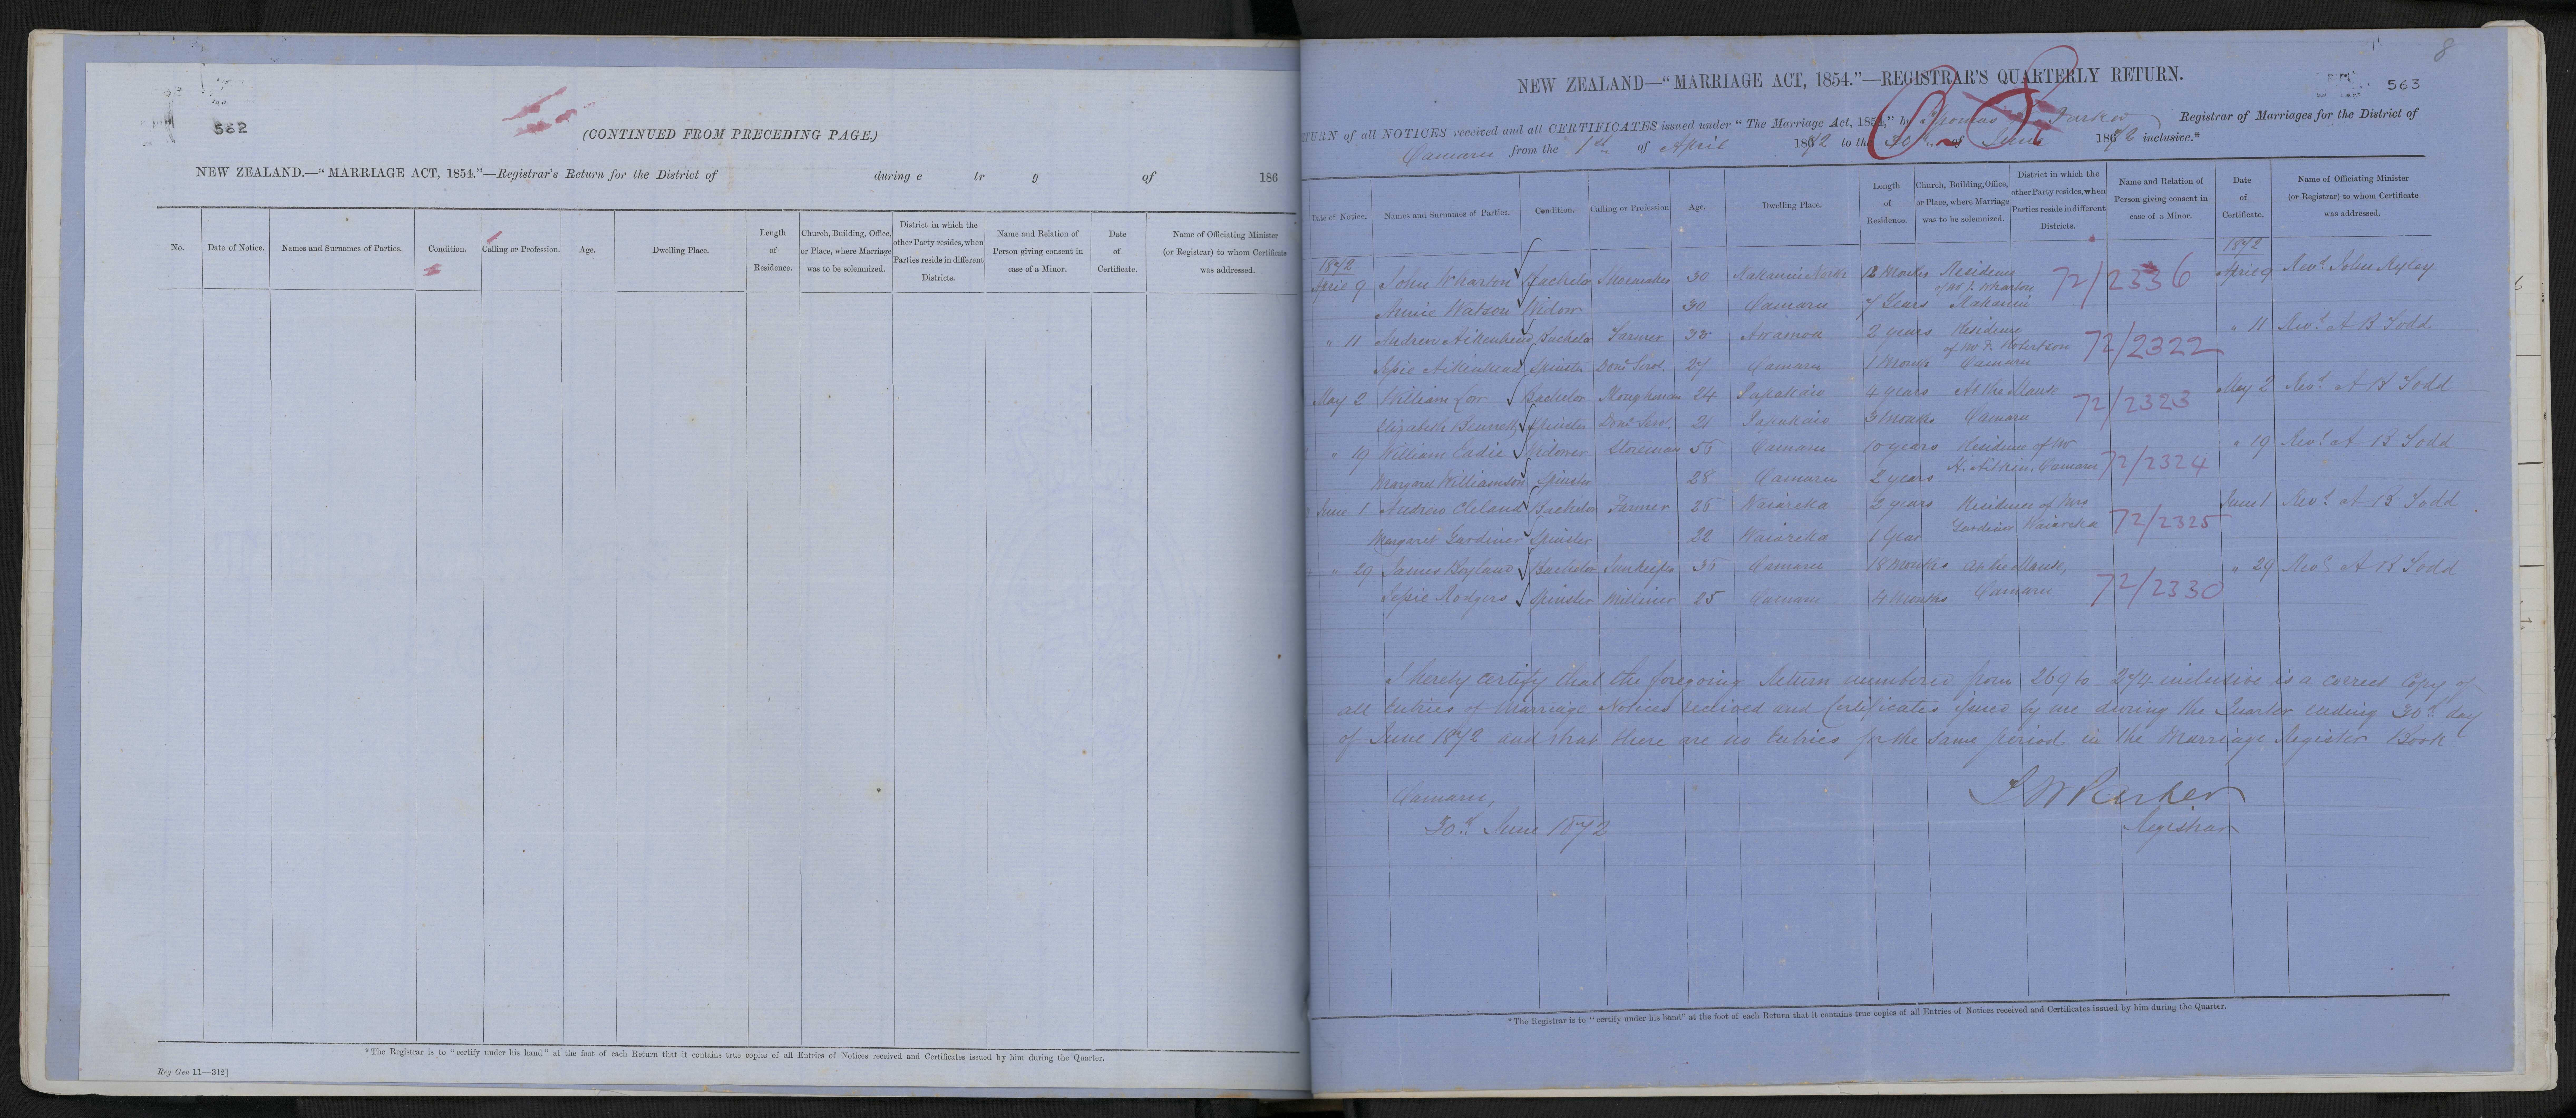 562
(CONTINUED FROM PRECEDING PAGE)
NEW ZEALAND.—“MARRIAGE ACT, 1854.”—Registrar's Return for the District of during e tr g of 186
No. Date of Notice. Names and Surnames of Parties. Condition. Calling or Profession. Age. Dwelling Place. Length of Residence. Church, Building, Office, or Place, where Marriage was to be solemnized. District in which the other Party resides, when Parties reside in different Districts. Name and Relation of Person giving consent in case of a Minor. Date of Certificate. Name of Officiating Minister (or Registrar) to whom Certificate was addressed.
*The Registrar is to “certify under his hand” at the foot of each Return that it contains true copies of all Entries of Notices received and Certificates issued by him during the Quarter.
Reg Gen 11—312]
8
NEW ZEALAND—“MARRIAGE ACT, 1854.”—REGISTRAR'S QUARTERLY RETURN.
563
TURN of all NOTICES received and all CERTIFICATES issued under “The Marriage Act, 1854,” by Thomas W. Parker Registrar of Marriages for the District of
Oamaru from the 1st of April 1872 to the 30th of June 1872 inclusive.*
Date of Notice. Names and Surnames of Parties. Condition. Calling or Profession Age. Dwelling Place. Length of Residence. Church, Building, Office, or Place, where Marriage was to be solemnized. District in which the other Party resides, when Parties reside in different Districts. Name and Relation of Person giving consent in case of a Minor. Date of Certificate. Name of Officiating Minister (or Registrar) to whom Certificate was addressed.
1872 1872
April 9 John Wharton Bachelor Shoemaker 30 Kakanui North 12 Months Residence 72/2336 April 9 Revd. John Ryley
of Mr J. Wharton
Annie Watson Widow 30 Oamaru 7 Years Kakanui
" 11 Andrew Aikenhead Bachelor Farmer 33 Awamoa 2 years Residence 72/2322 " 11 Revd. A B Todd
of Mr F. Robertson
Jessie Aikenhead Spinster Domc Servt. 27 Oamaru 1 Month Oamaru
May 2 William Low Bachelor Ploughman 24 Papakaio 4 years At the Manse 72/2323 May 2 Revd. A B Todd
Elizabeth Bennett Spinster Domc Servt. 21 Papakaio 3 Months Oamaru
" 19 William Eadie Widower Storeman 55 Oamaru 10 years Residence of Mr 72/2324 " 19 Revd. A B Todd
H. Aitkin, Oamaru
Margaret Williamson Spinster 28 Oamaru 2 years
June 1 Andrew Cleland Bachelor Farmer 25 Waiareka 2 years Residence of Mrs 72/2325 June 1 Revd. A B Todd
Gardiner Waiareka
Margaret Gardiner Spinster 22 Waiareka 1 Year
" 29 James Boyland Bachelor Innkeeper 35 Oamaru 18 Months At the Manse, 72/2330 " 29 Revd. A B Todd
Jessie Rodgers Spinster Milliner 25 Oamaru 4 Months Oamaru
I hereby certify that the foregoing Return numbered from 269 to 274 inclusive is a correct Copy of
all Entries of Marriage Notices received and Certificates issued by me during the Quarter ending 30th day
of June 1872 and that there are no Entries for the same period in the Marriage Register Book
Oamaru,
30th June 1872
T W Parker
Registrar
*The Registrar is to “certify under his hand” at the foot of each Return that it contains true copies of all Entries of Notices received and Certificates issued by him during the Quarter.